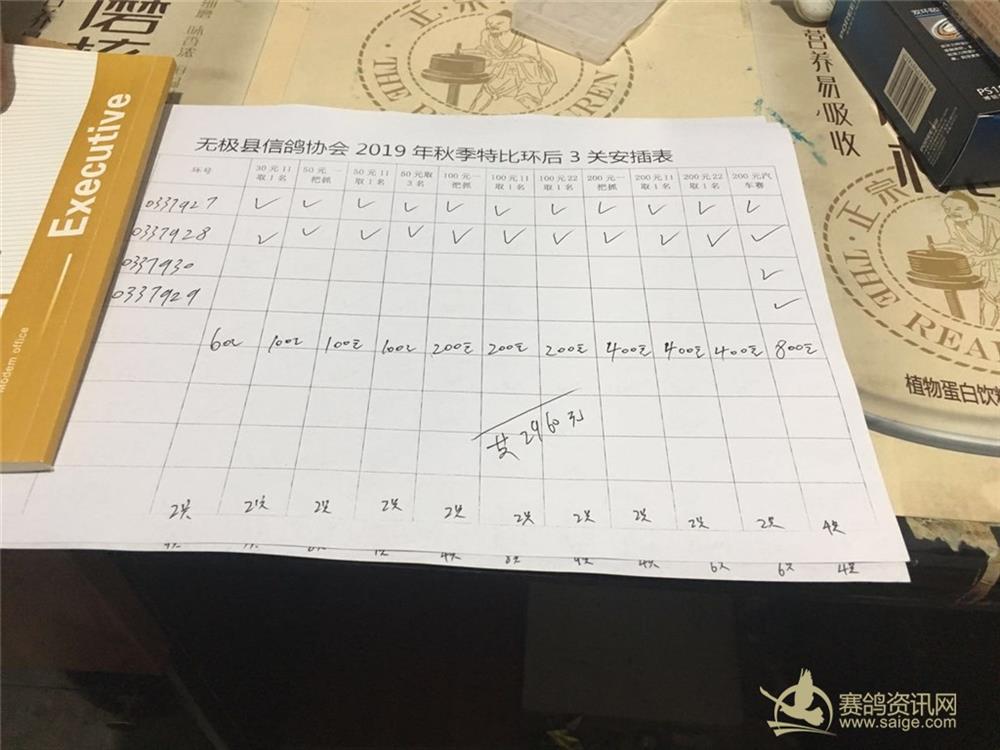 磨
THE REAL REN
正宗
营养易吸收
PS1
Executive
Modern office
无极县信鸽协会 2019 年秋季特比环后 3 关安插表
环号 30元11取1名 50元一把抓 50元11取1名 50元取3名 100元一把抓 100元11取1名 100元22取1名 200元一把抓 200元11取1名 200元22取1名 200元汽车赛
0337927 ✓ ✓ ✓ ✓ ✓ ✓ ✓ ✓ ✓ ✓ ✓
0337928 ✓ ✓ ✓ ✓ ✓ ✓ ✓ ✓ ✓ ✓ ✓
0337930 ✓
0337929 ✓
60元 100元 100元 100元 200元 200元 200元 400元 400元 400元 800元
共2960元
2只 2只 2只 2只 2只 2只 2只 2只 2只 2只 4只
4只 6只 6只 4只
正宗
THE REAL
植物蛋白饮料
赛鸽资讯网
www.saige.com